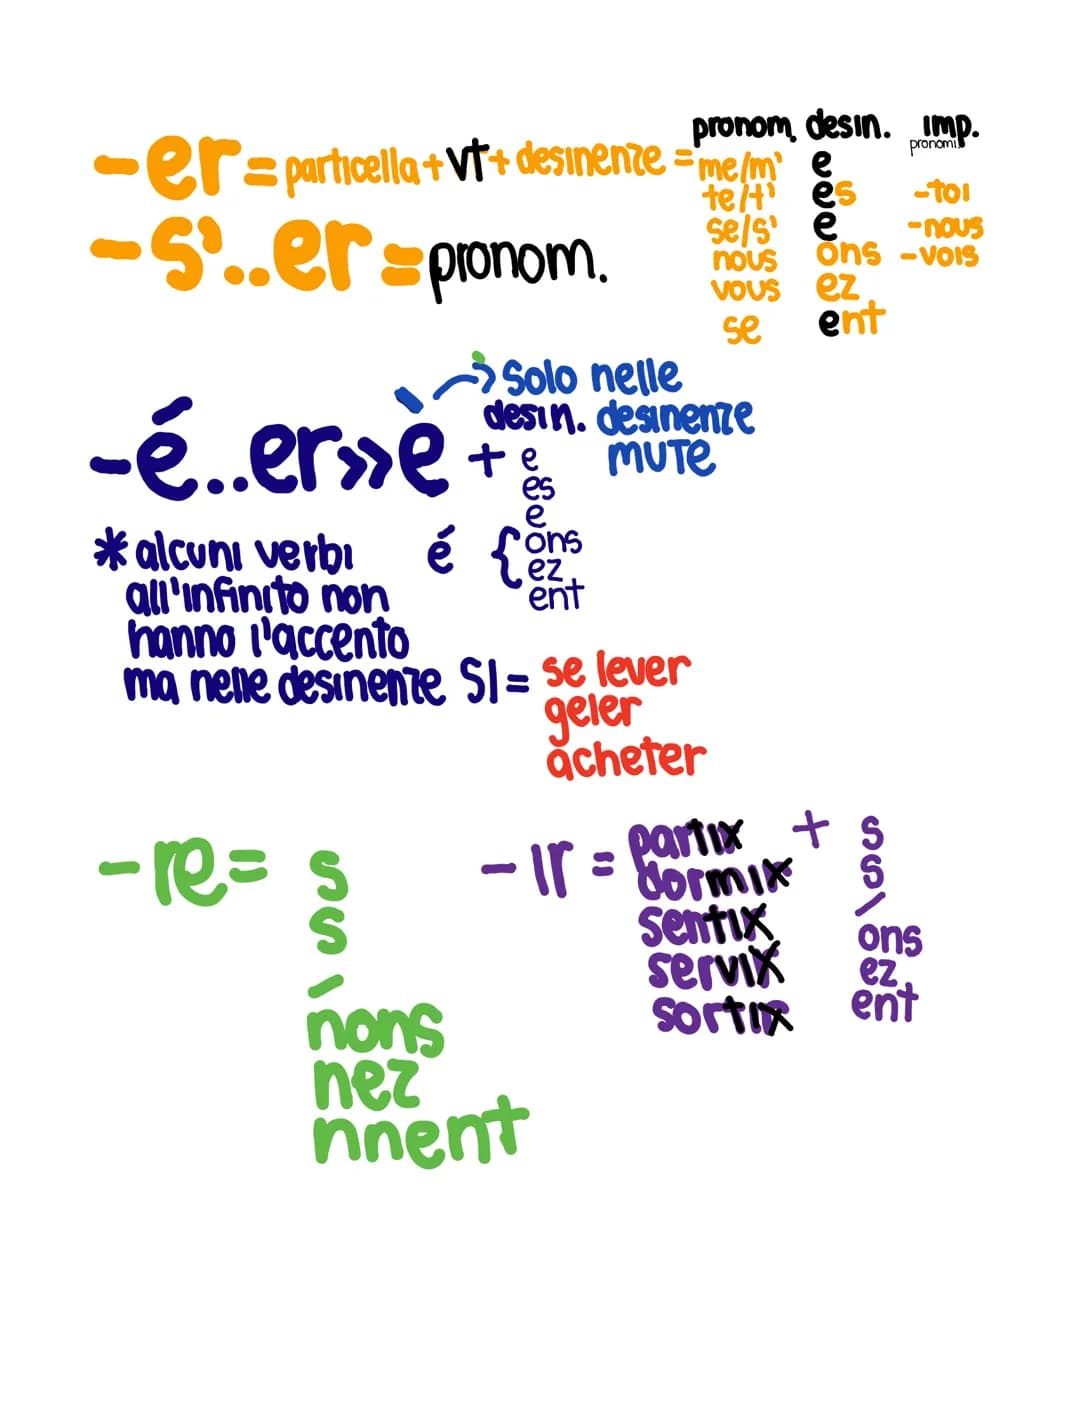 pronom. desin. imp.
pronomi.
-er = particella + vt + desinenze = me/m' e
te/t' es -toi
se/s' e -nous
nous ons -vois
vous ez
se ent
-s'..er = pronom.
-é..er >> è → solo nelle
desinenze
MUTE
desin.
+ e
es
e
é { ons
ez
ent
* alcuni verbi
all'infinito non
hanno l'accento
ma nelle desinenze SI = se lever
geler
acheter
-re = s
s
/
nons
nez
nnent
-ir = partir + s
dormir s
sentir /
servir ons
sortir ez
ent